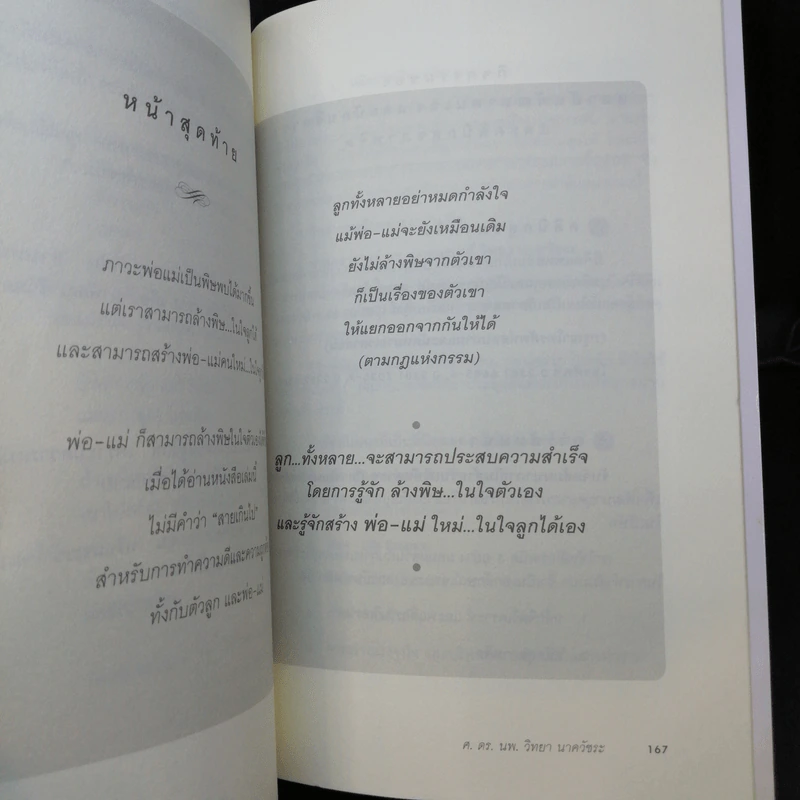 หน้าสุดท้าย
ภาวะพ่อแม่เป็นพิษพบได้มากขึ้น
แต่เราสามารถล้างพิษ...ในใจลูกได้
และสามารถสร้างพ่อ-แม่คนใหม่...ในใจ
พ่อ-แม่ ก็สามารถล้างพิษในใจตัวเอง
เมื่อได้อ่านหนังสือเล่มนี้
ไม่มีคำว่า "สายเกินไป"
สำหรับการทำความดีและความ
ทั้งกับตัวลูก และพ่อ-แม่
ลูกทั้งหลายอย่าหมดกำลังใจ
แม้พ่อ-แม่จะยังเหมือนเดิม
ยังไม่ล้างพิษจากตัวเขา
ก็เป็นเรื่องของตัวเขา
ให้แยกออกจากกันให้ได้
(ตามกฎแห่งกรรม)
ลูก...ทั้งหลาย...จะสามารถประสบความสำเร็จ
โดยการรู้จัก ล้างพิษ...ในใจตัวเอง
และรู้จักสร้าง พ่อ-แม่ ใหม่...ในใจลูกได้เอง
ศ. ดร. นพ. วิทยา นาควัชระ 167